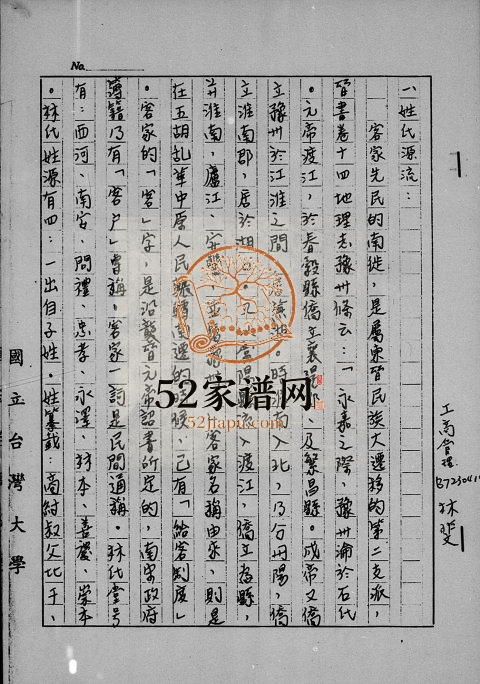 No.
一、姓氏源流：
客家先民的南徙，是屬東晉民族大遷移的第二支派，
晉書卷十四地理志豫州條云：「永嘉之際，豫州淪於石氏
。元帝渡江，於春穀縣僑立襄城郡、及繁昌縣。成帝又僑
立豫州於江淮之間，居蕪湖。時淮南入北，乃分丹陽，僑
立淮南郡，居於湖
渡江，僑立當縣，
并淮南，廬江，安豐，
客家名稱由來，則是
在五胡亂華中原人民輾轉南遷的
已有「給客制度」
。客家的「客」字，是沿襲晉元帝詔書所定的，南宋政府
簿籍乃有「客戶」曾稱，客家一詞是民間通稱。林氏堂號
有：西河、南安、問禮、忠孝、永澤、林本、善慶、崇本
。林氏姓源有四：一出自子姓。姓纂載：商紂叔父比干、
工商管理
林斐
國立台灣大學
52家谱网
52jiapu.com